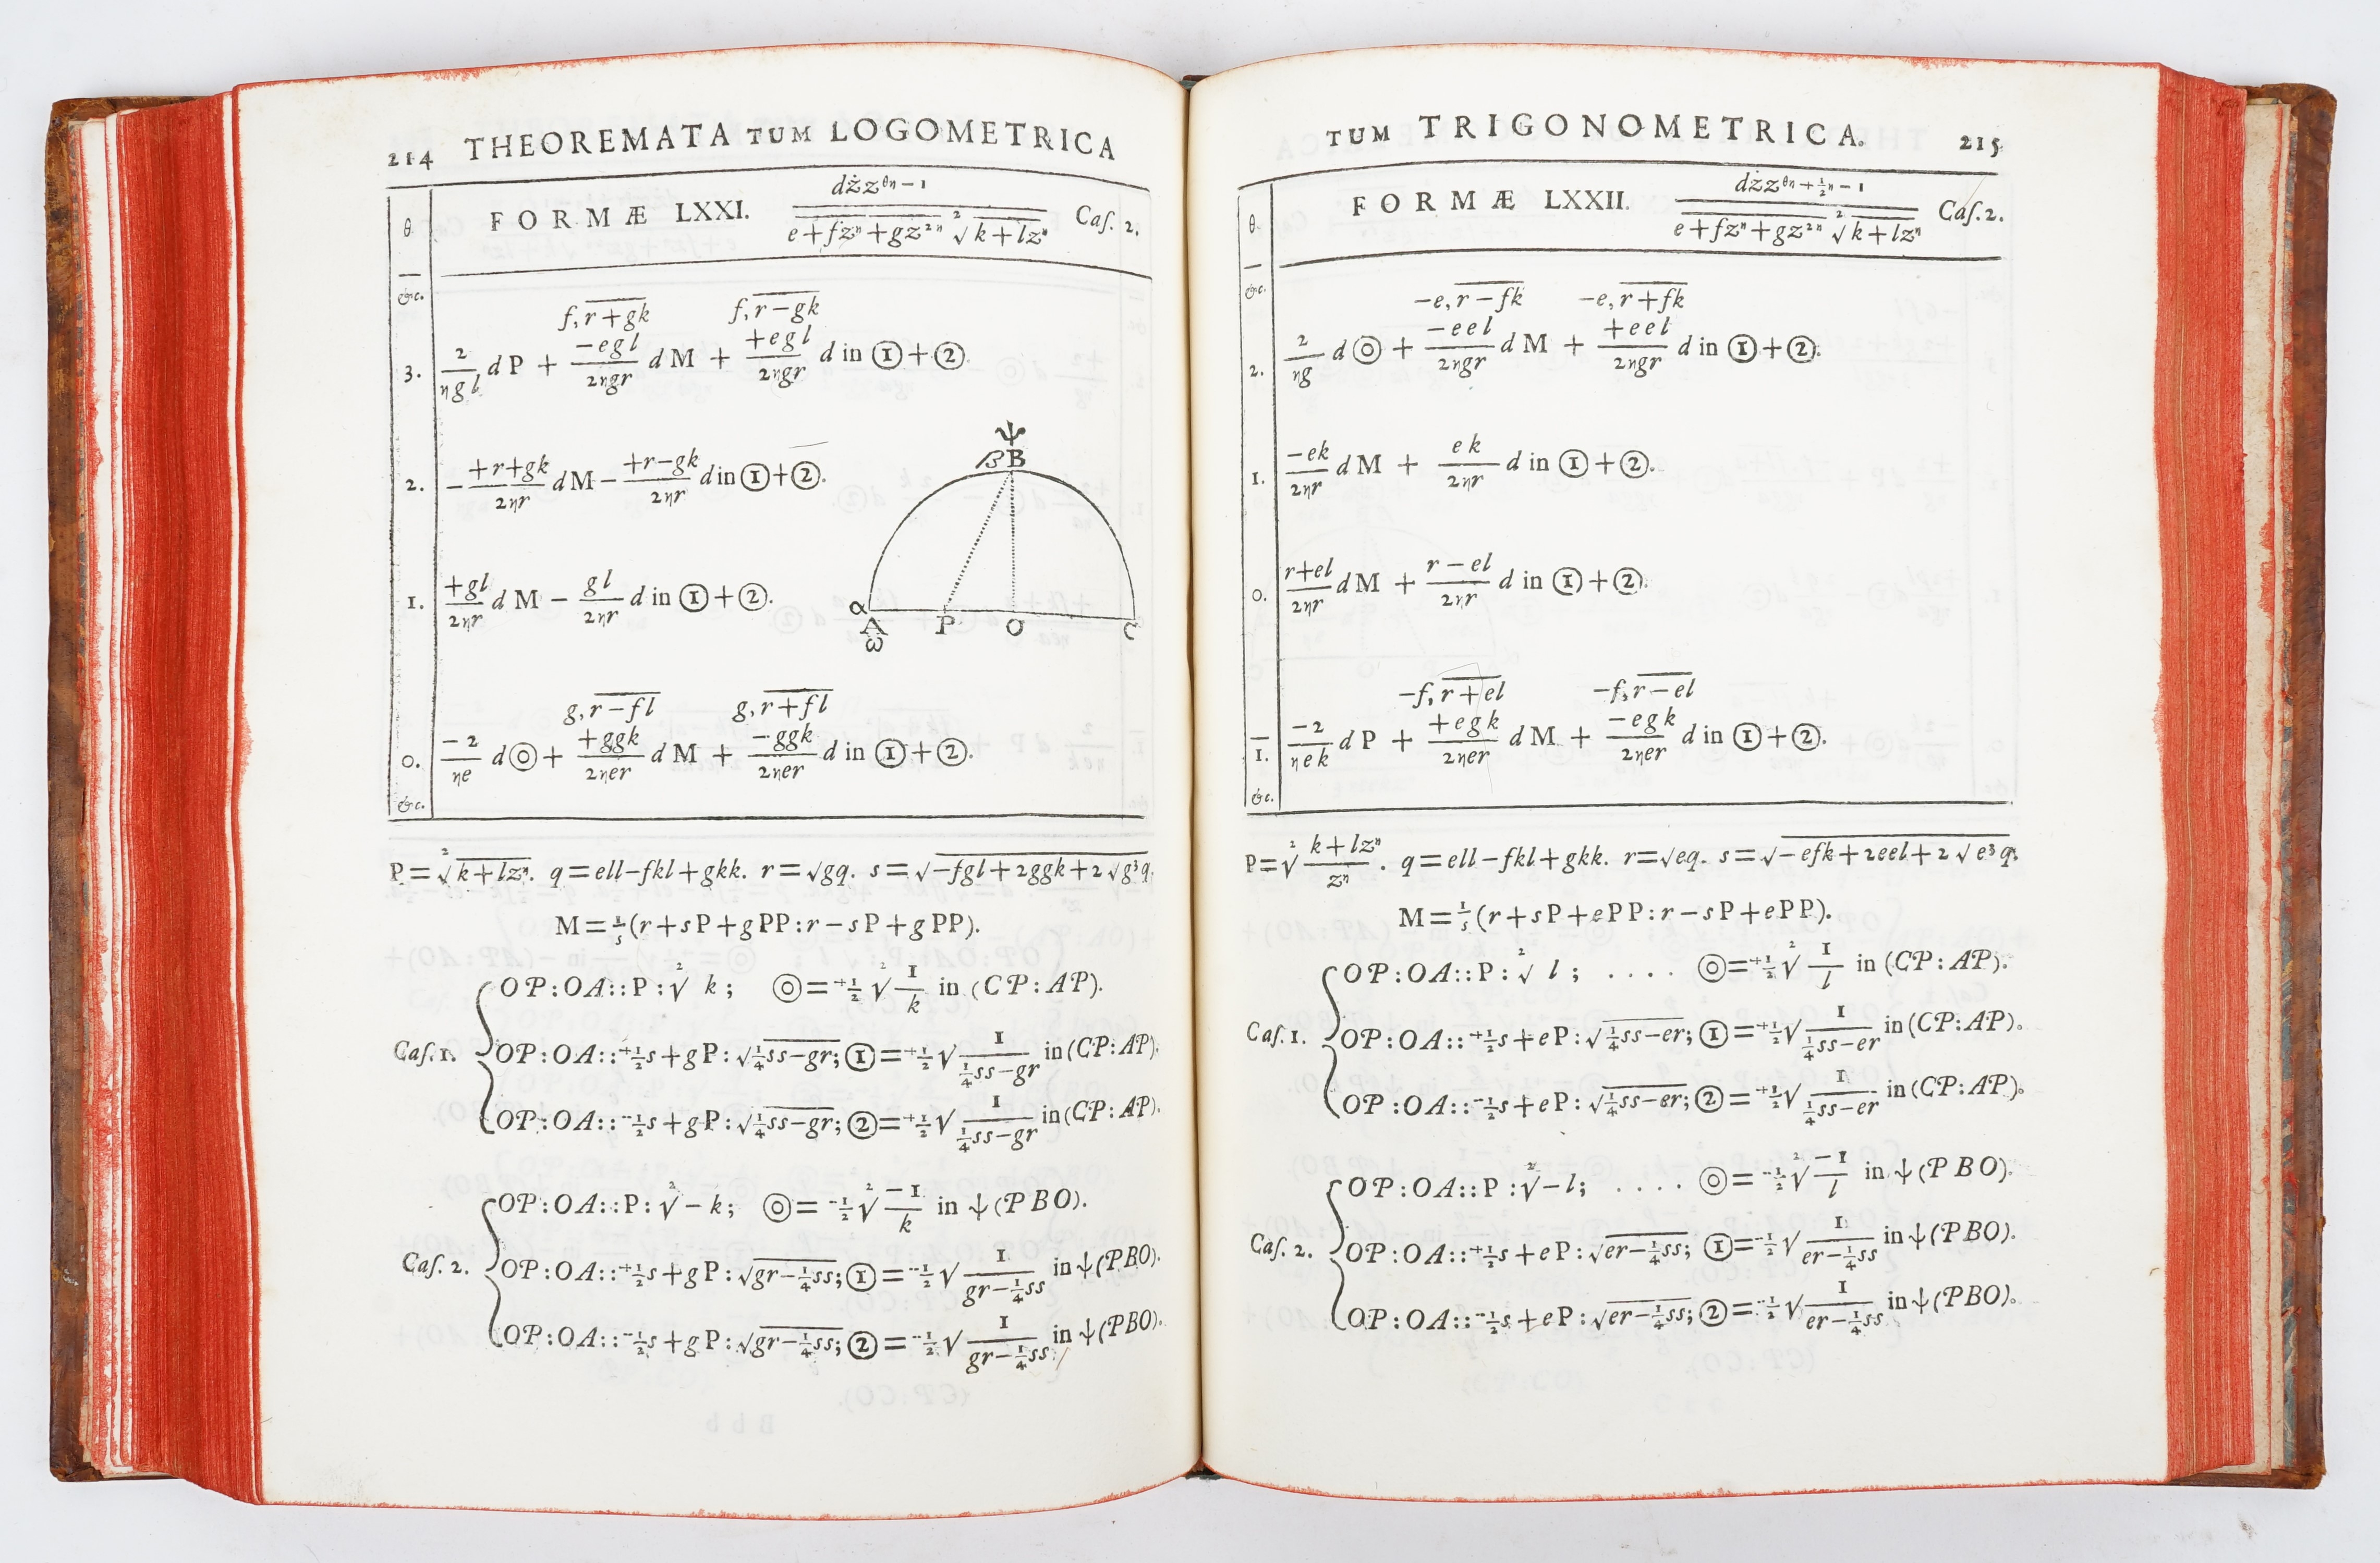 214 THEOREMATA TUM LOGOMETRICA
θ. FORMÆ LXXI. dżz^{θη−1} / e+fz^η+gz^{2η} ²√k+lz^η Caſ. 2.
&c.
f, r+gk f, r−gk
3. 2/ηgl dP + −egl/2ηgr dM + +egl/2ηgr d in ①+②.
Ψ
βB
2. − +r+gk/2ηr dM − +r−gk/2ηr d in ①+②.
1. +gl/2ηr dM − gl/2ηr d in ①+②.
α
A P O C
ω
g, r−fl g, r+fl
0. −2/ηe d◎ + +ggk/2ηer dM + −ggk/2ηer d in ①+②.
&c.
P = ²√k+lz^η. q=ell−fkl+gkk. r=√gq. s=√−fgl+2ggk+2√g³q.
M = 1/s (r+sP+gPP : r−sP+gPP).
OP:OA::P:²√k; ◎=+½ ²√1/k in (CP:AP).
Caſ. 1. OP:OA::+½s+gP:√¼ss−gr; ①=+½√1/¼ss−gr in (CP:AP).
OP:OA::−½s+gP:√¼ss−gr; ②=+½√1/¼ss−gr in (CP:AP).
OP:OA::P:²√−k; ◎=−½ ²√−1/k in ψ(PBO).
Caſ. 2. OP:OA::+½s+gP:√gr−¼ss; ①=−½√1/gr−¼ss in ψ(PBO).
OP:OA::−½s+gP:√gr−¼ss; ②=−½√1/gr−¼ss in ψ(PBO).
TUM TRIGONOMETRICA. 215
θ. FORMÆ LXXII. dżz^{θη+½η−1} / e+fz^η+gz^{2η} ²√k+lz^η Caſ. 2.
&c.
−e, r−fk −e, r+fk
2. 2/ηg d◎ + −eel/2ηgr dM + +eel/2ηgr d in ①+②.
1. −ek/2ηr dM + ek/2ηr d in ①+②.
0. r+el/2ηr dM + r−el/2ηr d in ①+②.
−f, r+el −f, r−el
−1. −2/ηek dP + +egk/2ηer dM + −egk/2ηer d in ①+②.
&c.
P=²√k+lz^η/z^η. q=ell−fkl+gkk. r=√eq. s=√−efk+2eel+2√e³q.
M = 1/s (r+sP+ePP : r−sP+ePP).
OP:OA::P:²√l; . . . . ◎=+½ ²√1/l in (CP:AP).
Caſ. 1. OP:OA::+½s+eP:√¼ss−er; ①=+½√1/¼ss−er in (CP:AP).
OP:OA::−½s+eP:√¼ss−er; ②=+½√1/¼ss−er in (CP:AP).
OP:OA::P:²√−l; . . . . ◎=−½ ²√−1/l in ψ(PBO).
Caſ. 2. OP:OA::+½s+eP:√er−¼ss; ①=−½√1/er−¼ss in ψ(PBO).
OP:OA::−½s+eP:√er−¼ss; ②=−½√1/er−¼ss in ψ(PBO).